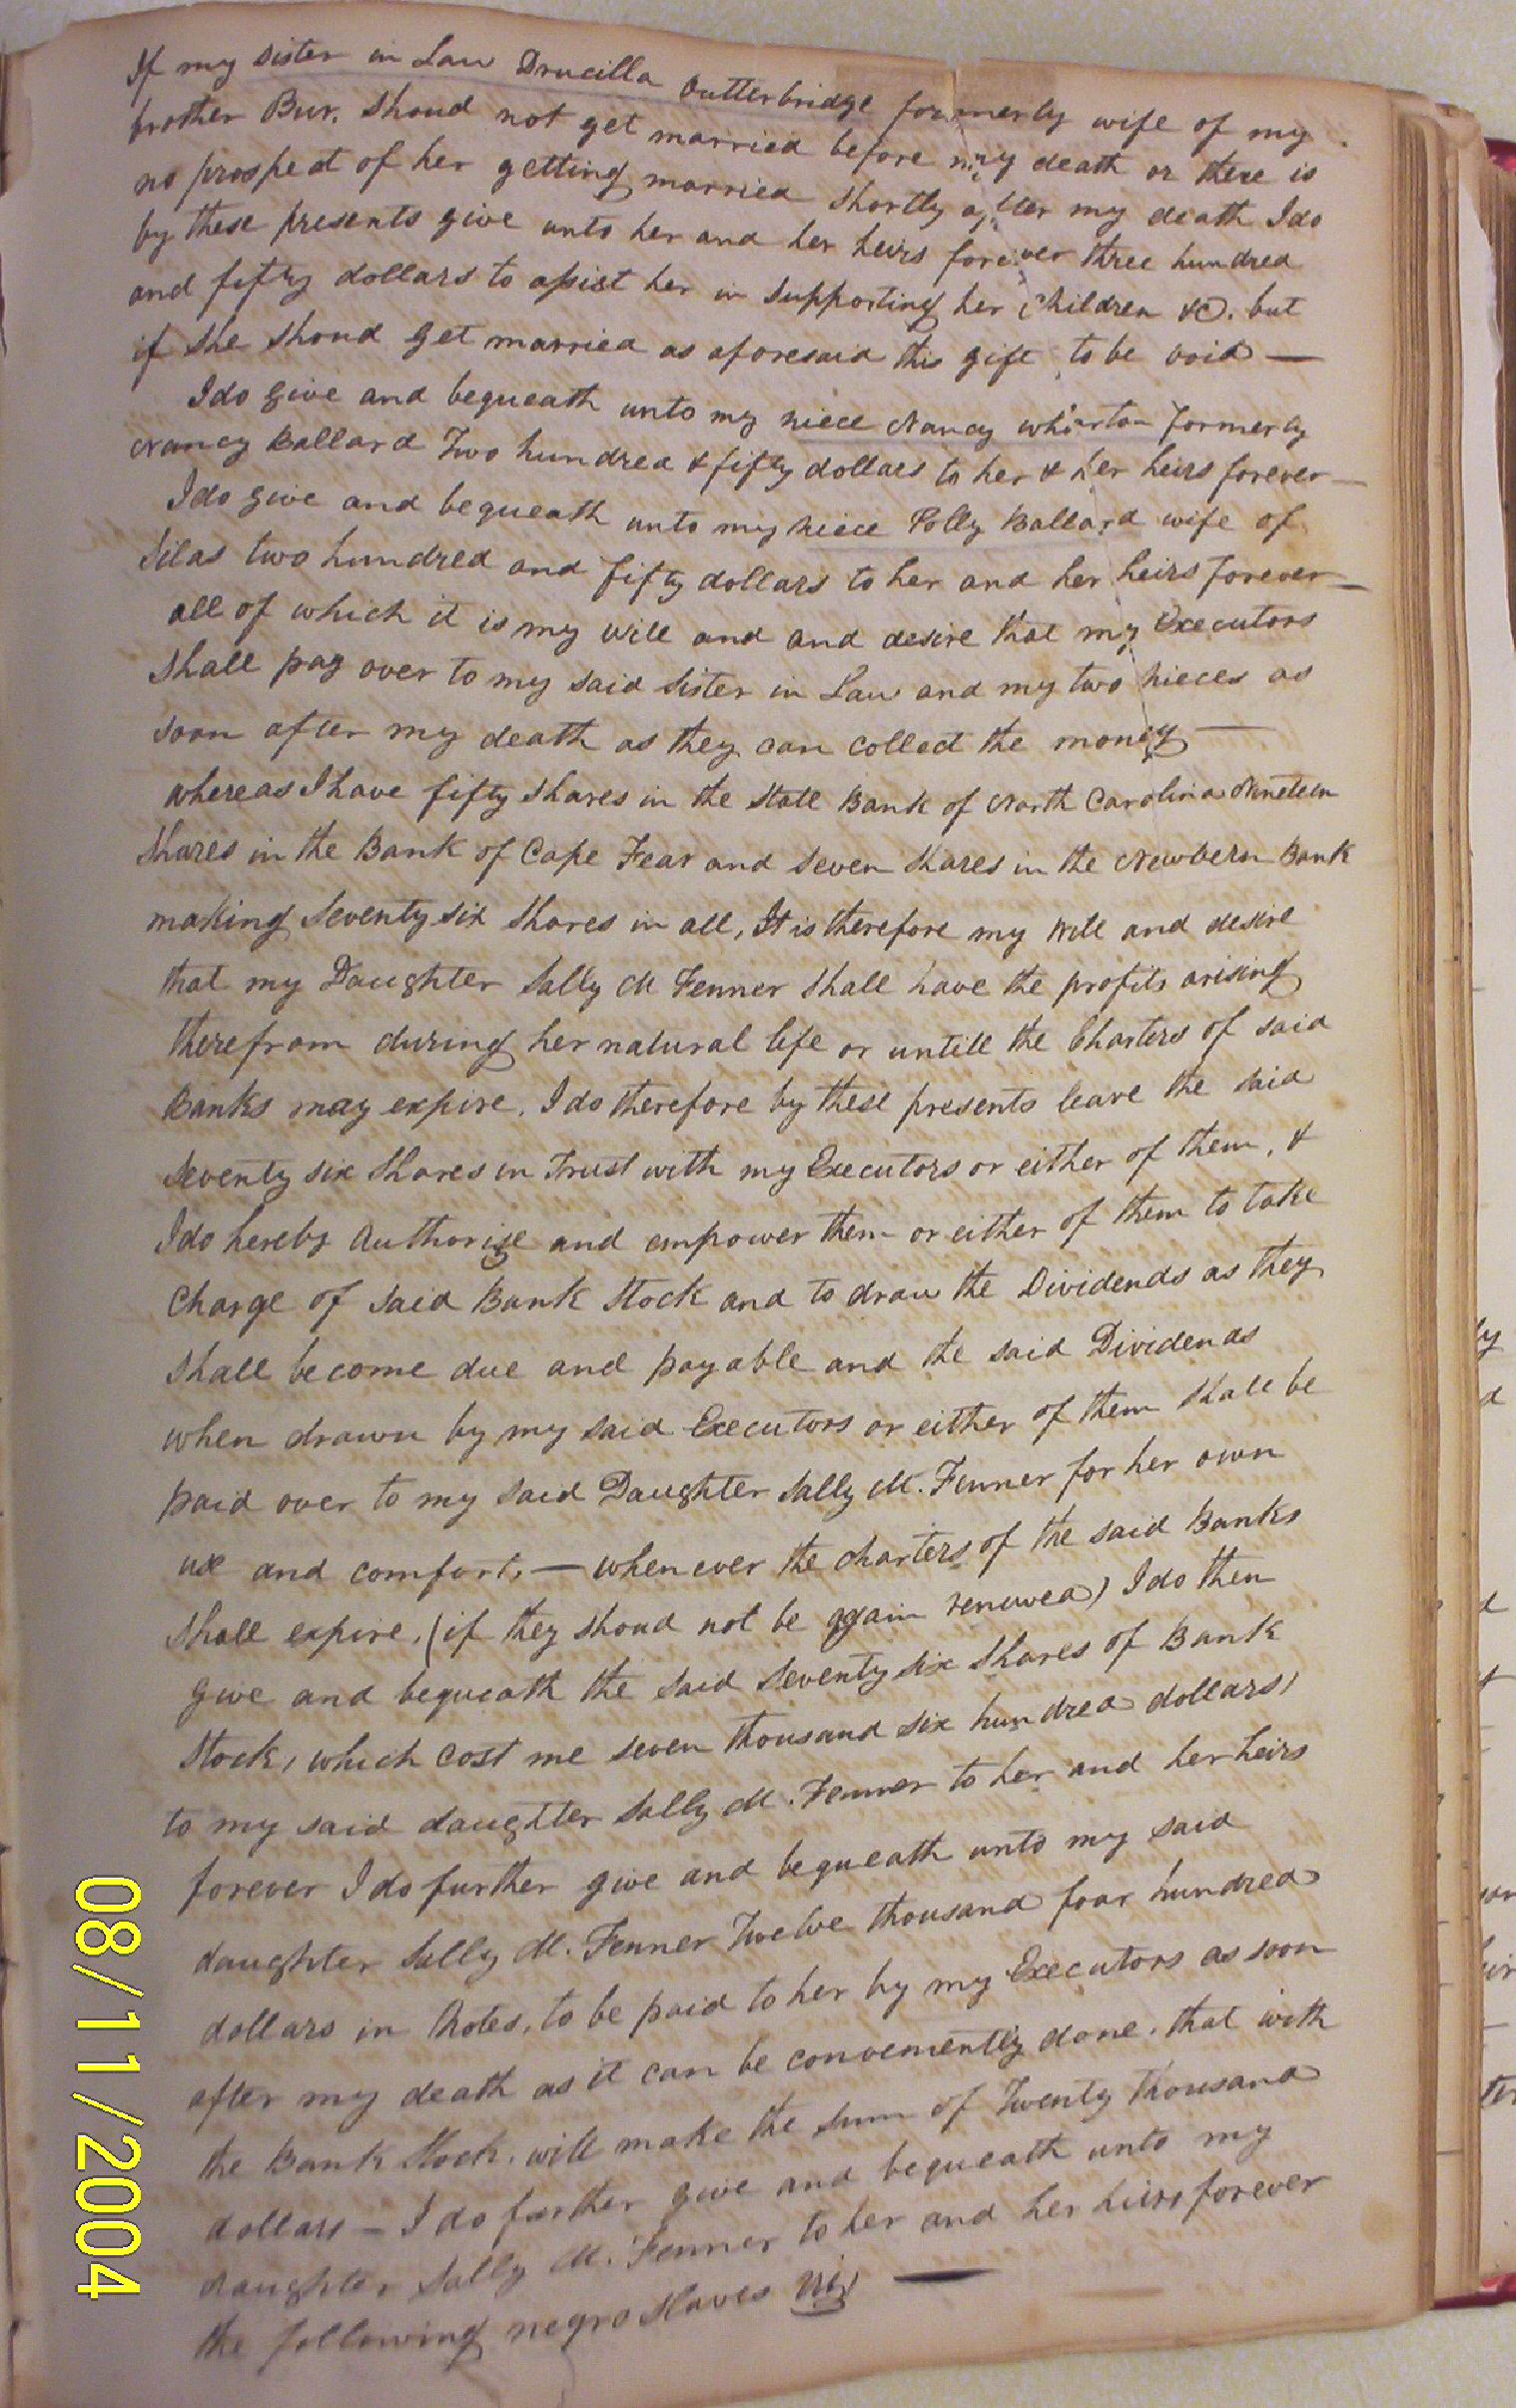 If my sister in Law Drucilla Outterbridge formerly wife of my
brother Bur. Shoud not get married before my death or there is
no prospect of her getting married shortly after my death I do
by these presents give unto her and her heirs forever three hundred
and fifty dollars to assist her in supporting her Children &C. but
if She Shoud Get married as aforesaid this gift to be void —
I do give and bequeath unto my niece Nancy Whorton formerly
Nancy Ballard Two hundred & fifty dollars to her & her heirs forever —
I do give and bequeath unto my niece Polly Ballard wife of
Silas two hundred and fifty dollars to her and her heirs forever —
all of which it is my will and and desire that my Executors
Shall pay over to my said Sister in Law and my two nieces as
soon after my death as they can Collect the money —
whereas I have fifty Shares in the State Bank of North Carolina Nineteen
Shares in the Bank of Cape Fear and Seven Shares in the Newbern Bank
making Seventy six Shares in all, It is therefore my Will and desire
that my Daughter Sally M Fenner Shall have the profits arising
therefrom during her natural life or untill the Charters of said
Banks may expire. I do therefore by these presents leave the said
Seventy six Shares in Trust with my Executors or either of them, &
I do hereby Authorise and empower them or either of them to take
Charge of said Bank Stock and to draw the Dividends as they
Shall become due and payable and the said Dividends
when drawn by my said Executors or either of them Shall be
paid over to my said Daughter Sally M. Fenner for her own
use and comfort. — whenever the charters of the said Banks
Shall expire, (if they Shoud not be again renewed) I do then
give and bequeath the said Seventy six Shares of Bank
Stock, which Cost me seven thousand six hundred dollars,
to my said daughter Sally M. Fenner to her and her heirs
forever I do further give and bequeath unto my said
daughter Sally M. Fenner Twelve thousand four hundred
dollars in Notes, to be paid to her by my Executors as soon
after my death as it can be conveniently done. that with
the Bank Stock, will make the Sum of Twenty thousand
dollars — I do further give and bequeath unto my
daughter Sally M. Fenner to her and her heirs forever
the following negro Slaves Viz —
08/11/2004